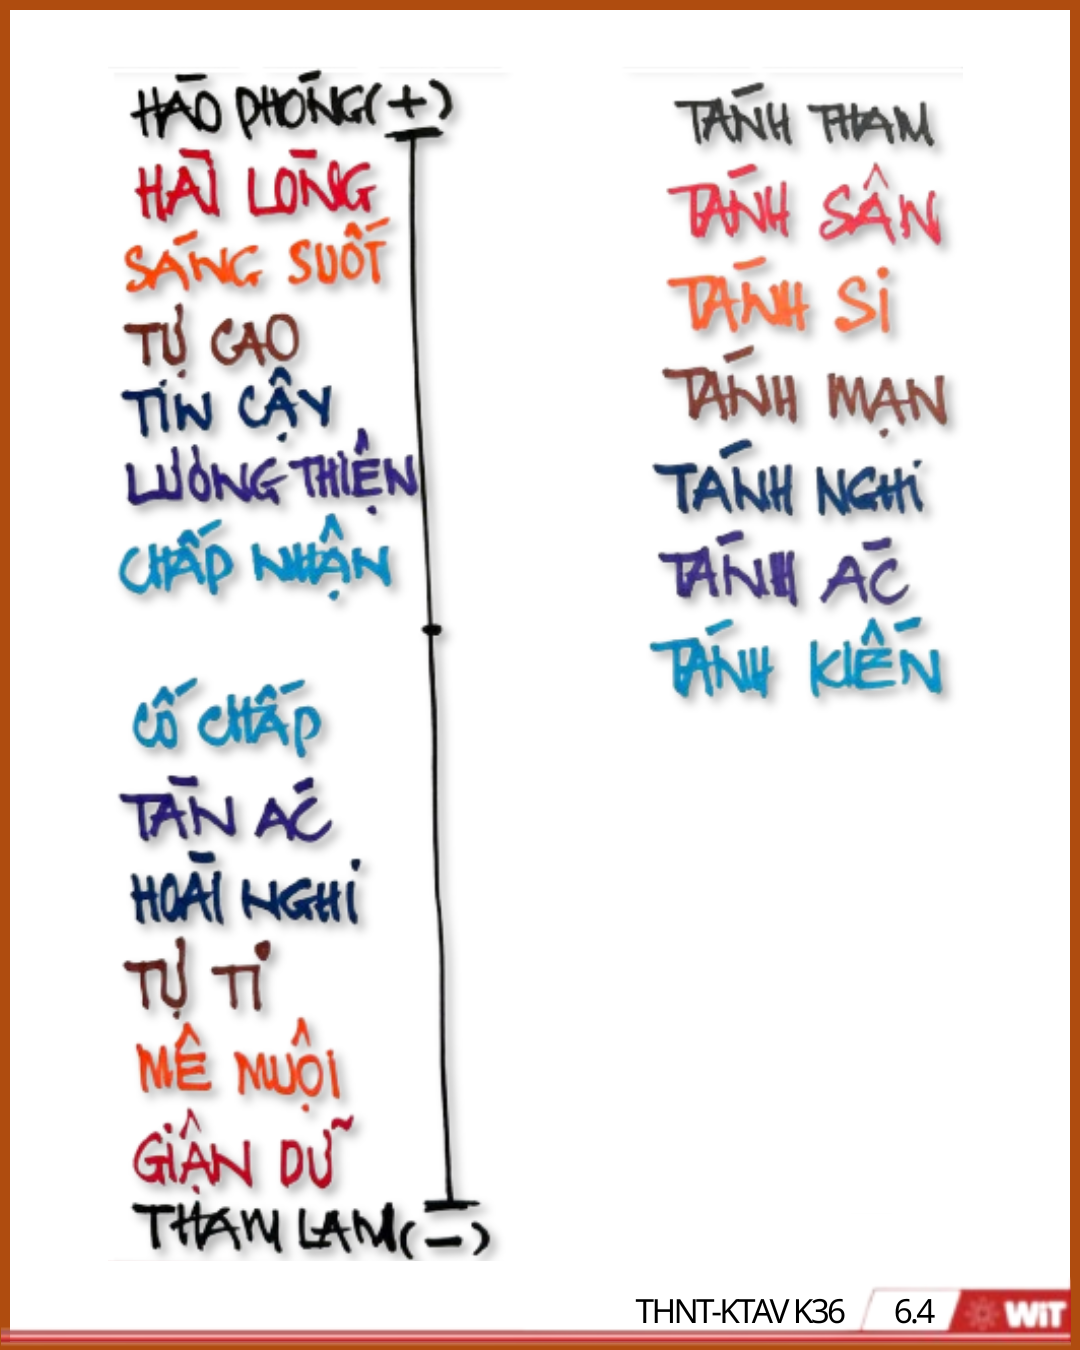 HÀO PHÓNG (+)
HÀI LÒNG
SÁNG SUỐT
TỰ CAO
TIN CẬY
LƯƠNG THIỆN
CHẤP NHẬN
CỐ CHẤP
TÀN ÁC
HOÀI NGHI
TỰ TI
MÊ MUỘI
GIẬN DỮ
THAM LAM (-)
TÁNH THAM
TÁNH SÂN
TÁNH SI
TÁNH MẠN
TÁNH NGHI
TÁNH ÁC
TÁNH KIẾN
THNT-KTAV K36
6.4
WiT